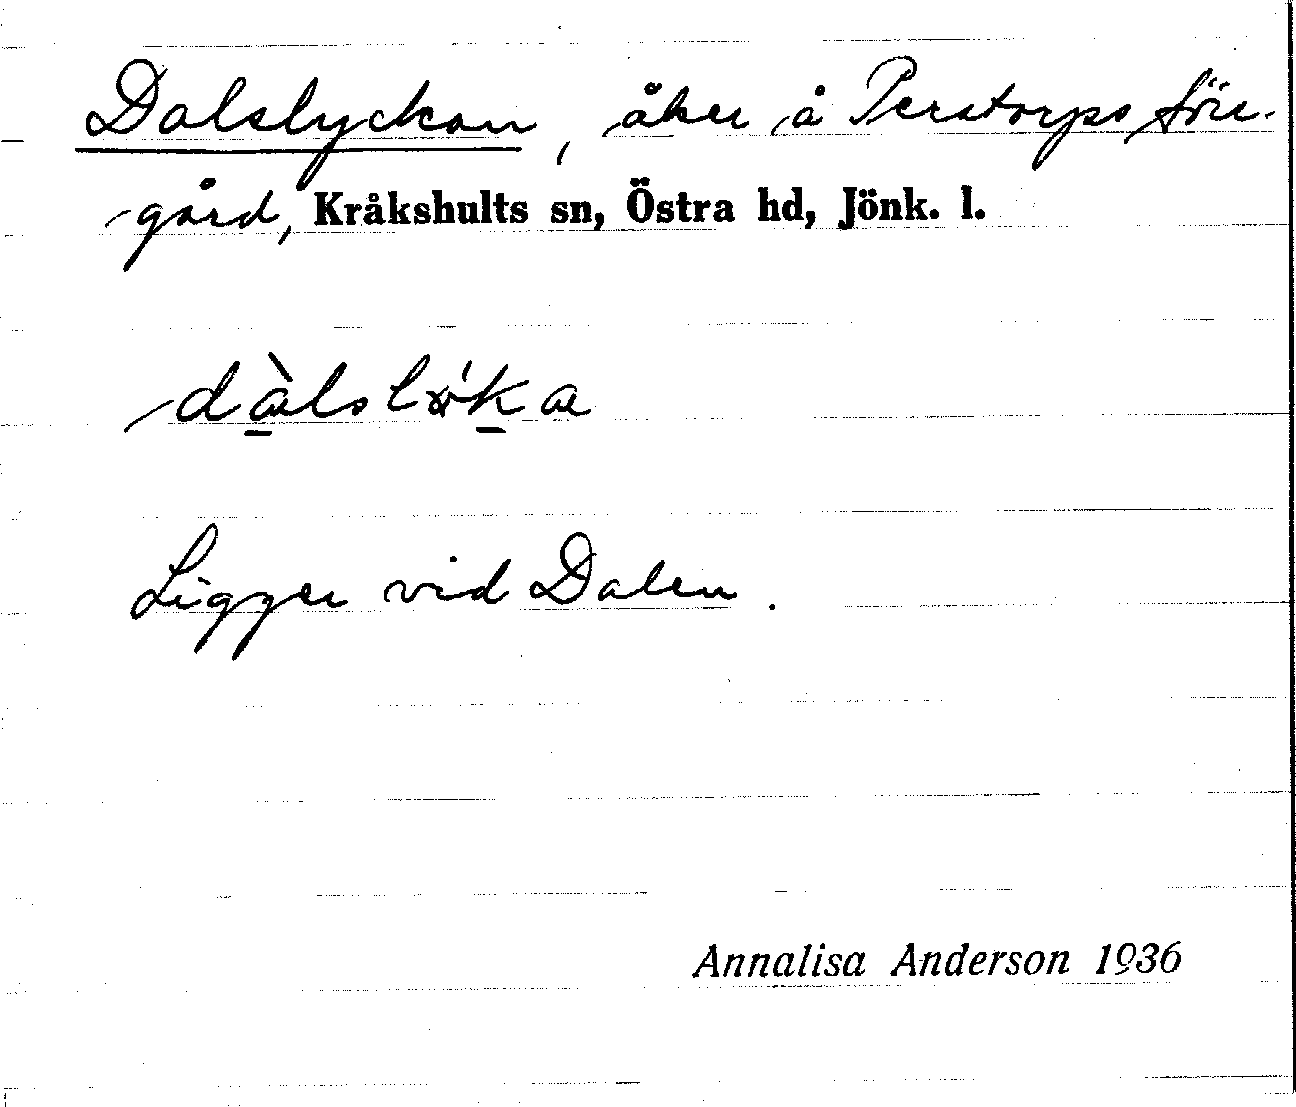 Dalslyckan, åker å Perstorps sör-
gård, Kråkshults sn, Östra hd, Jönk. l.
Ligger vid Dalen.
Annalisa Anderson 1936